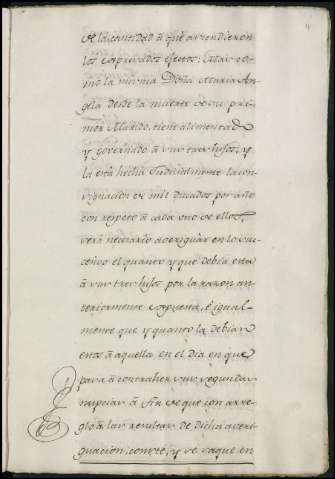 de la cantidad à que ascendieron
los expresados efectos: Y atento
à que la misma Doña Maria An-
gela desde la muerte de su pri-
mer Marido, tiene alimentado
y governado à sus tres hijos, y
la està hecha Judicialmente la con-
signacion de mil ducados por año
con respeto à cada uno de ellos,
serà necesario averiguar en lo su-
cesivo el quanto y que debia esta
à sus tres hijos por la razon an-
teriormente expuesta, è igual-
mente que y quanto la debian
estos à aquella en el dia en que
pasa à contraher sus segundas
nupcias à fin de que con arre-
glo à las resultas de dicha averi-
guacion, conste, y se saque en